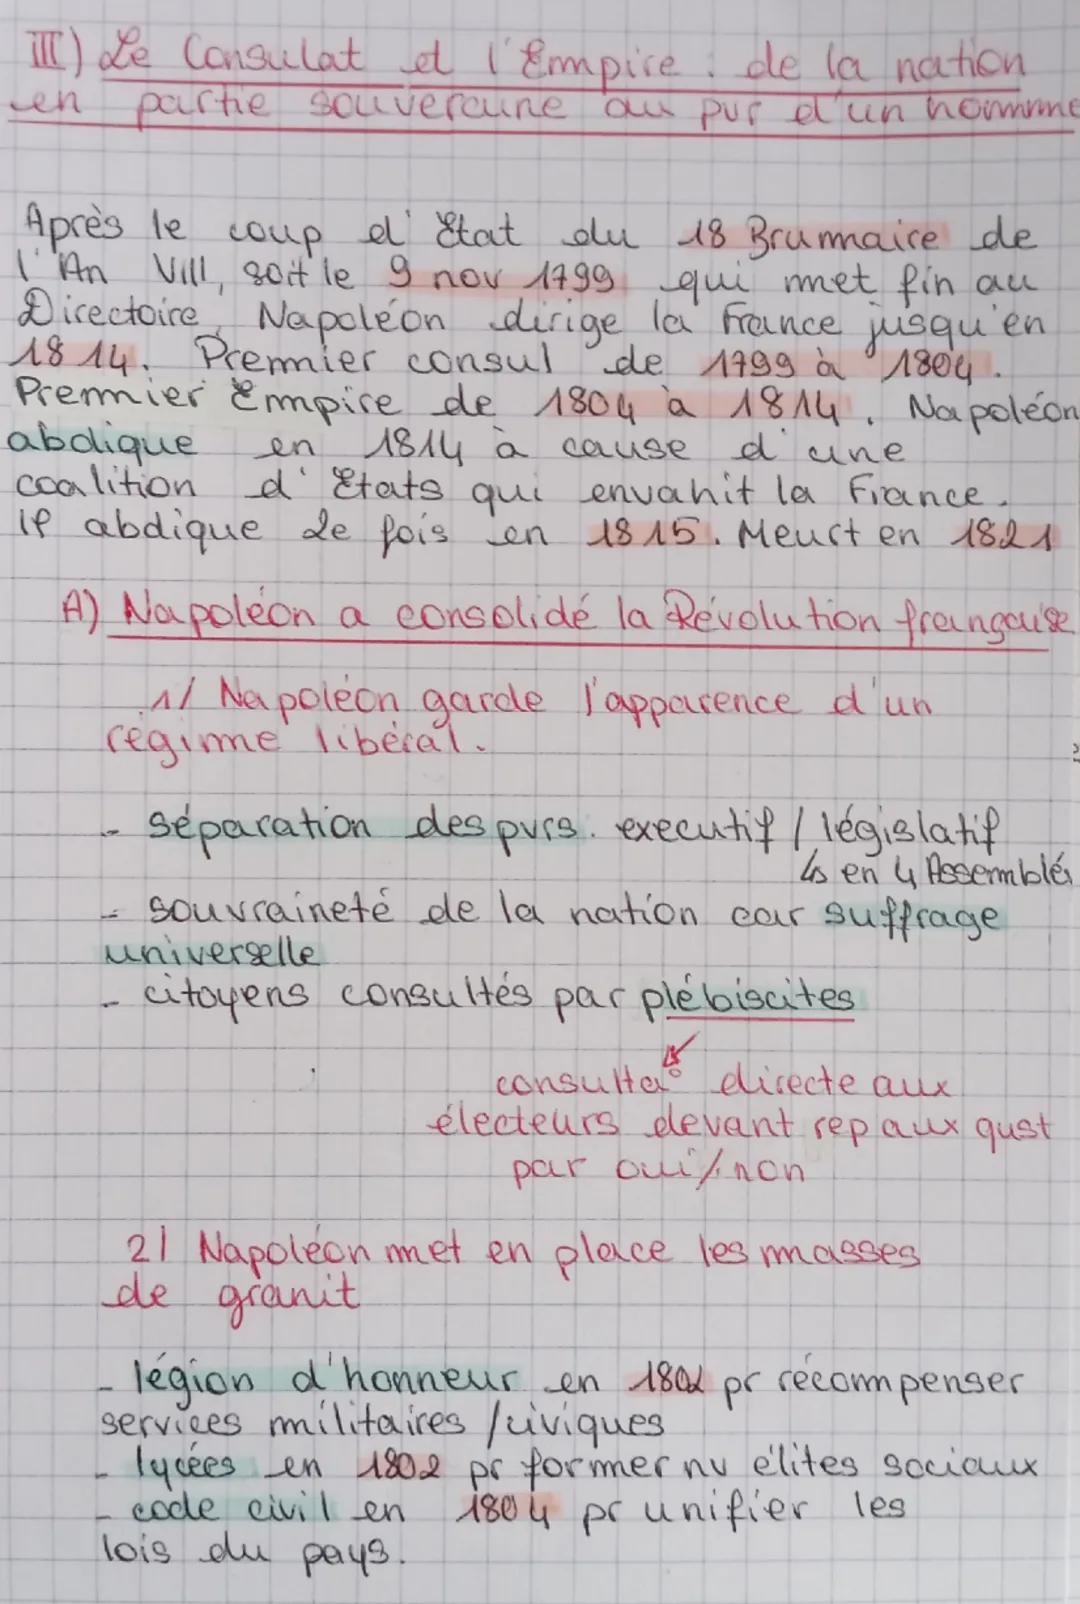 III) Le Consulat et l'Empire : de la nation
en partie souveraine au pvr d'un homme
Après le coup d'État du 18 Brumaire de
l'An VIII, soit le 9 nov 1799 qui met fin au
Directoire, Napoléon dirige la France jusqu'en
1814. Premier consul de 1799 à 1804.
Premier Empire de 1804 à 1814. Napoléon
abdique en 1814 à cause d'une
coalition d'États qui envahit la France.
Il abdique 2e fois en 1815. Meurt en 1821
A) Napoléon a consolidé la Révolution française
1/ Napoléon garde l'apparence d'un
régime libéral.
- séparation des pvrs. executif / législatif
↳ en 4 Assemblés
- souvraineté de la nation car suffrage
universelle
- citoyens consultés par plébiscites
consulta° directe aux
électeurs devant rep aux qust
par oui/non
2/ Napoléon met en place les masses
de granit
- légion d'honneur en 1802 pr récompenser
services militaires /civiques
- lycées en 1802 pr former nv élites sociaux
- code civil en 1804 pr unifier les
lois du pays.